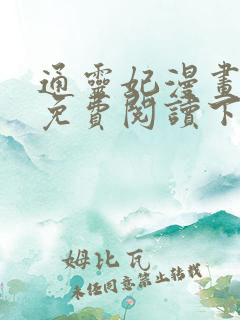 通靈妃漫畫
免費閱讀下
姆比瓦
未经同意禁止转载